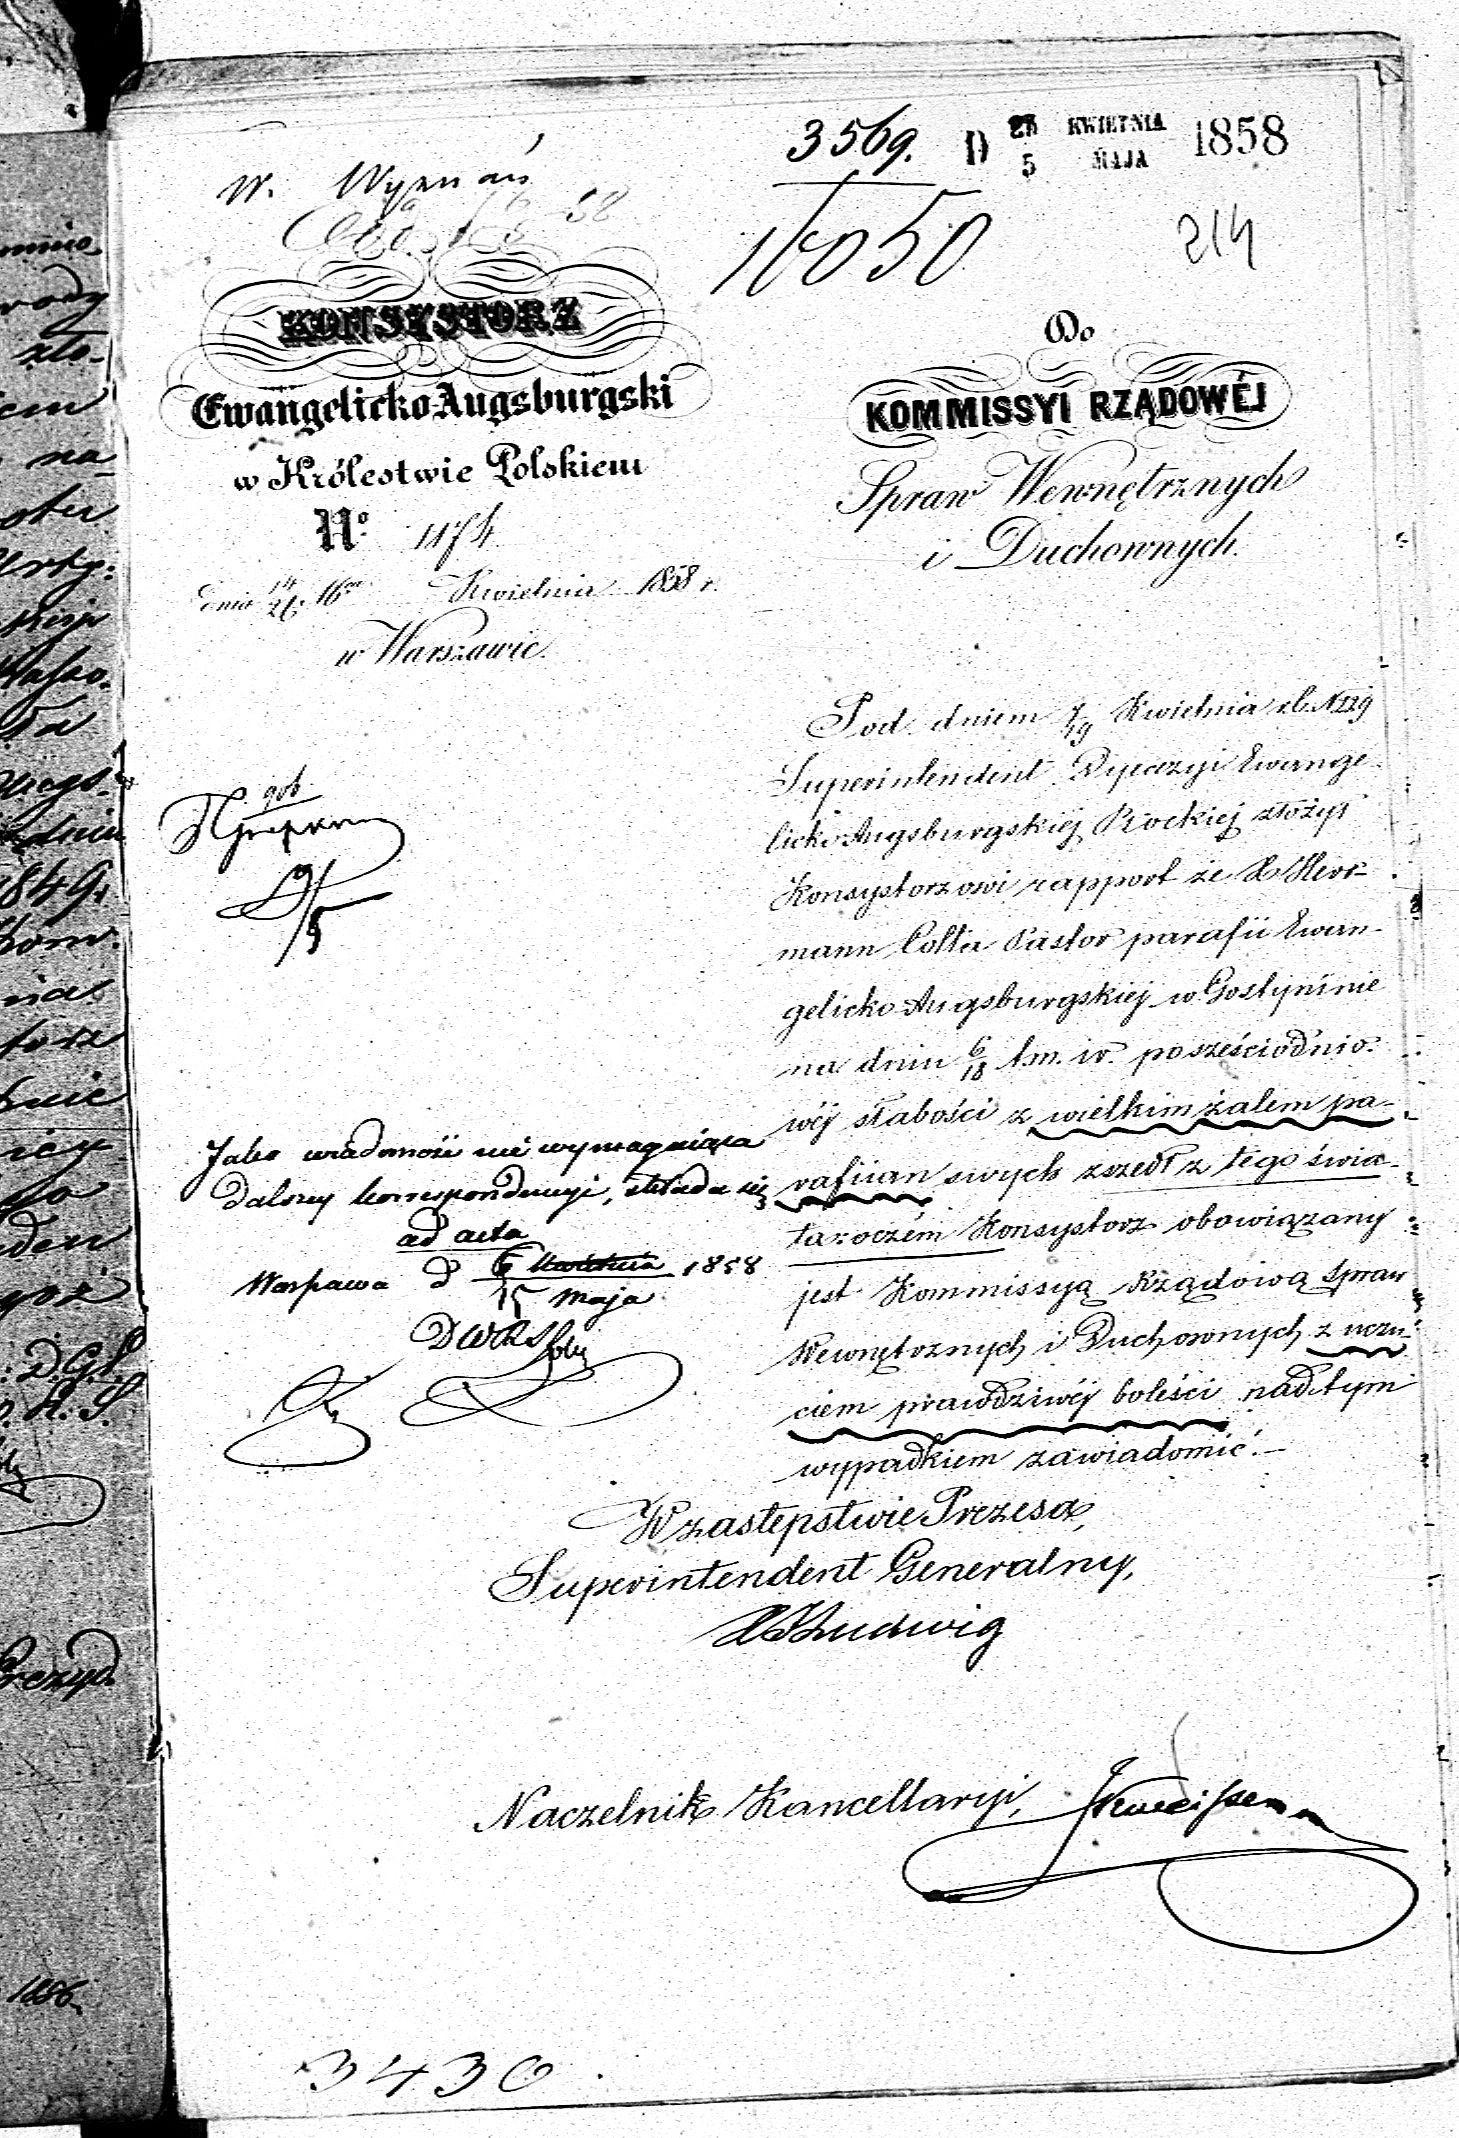 3569. D 23 KWIETNIA 1858
5 MAJA
W. Wyznań
16050
214
KONSYSTORZ
Ewangelicko Augsburgski
w Królestwie Polskiem
No. 1174
dnia 14/26 Kwietnia 1858 r.
w Warszawie.
Do
KOMMISSYI RZĄDOWÉJ
Spraw Wewnętrznych
i Duchownych.
Pod dniem 7/19 Kwietnia r.b. N 229
Superintendent Dyecezyi Ewange-
licko Augsburgskiej Płockiej złożył
Konsystorzowi rapport że X Herr-
mann Colta Pastor parafii Ewan-
gelicko Augsburgskiej w Gostyninie
na dniu 6/18 t.m. i r. po sześciodnio-
wéj słabości z wielkim żalem pa-
rafiian swych zszedł z tego świa-
ta, o czém Konsystorz obowiązany
jest Kommissyą Rządową Spraw
Wewnętrznych i Duchownych z uczu-
ciem prawdziwéj boleści nad tym
wypadkiem zawiadomić.—
W zastępstwie Prezesa,
Superintendent Generalny,
X Ludwig
Naczelnik Kancellaryi,
9/5
Jako wiadomość nie wymagaiąca
dalszey korrespondencyi, składa się
ad acta
Warszawa d 3/15 Kwietnia Maja 1858
DWRS
3430